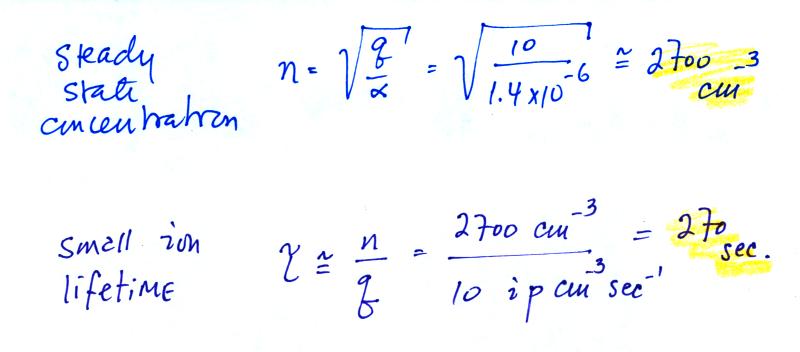 steady
state
concentration
n = √(q/α) = √(10/1.4×10⁻⁶) ≅ 2700 cm⁻³
small ion
lifetime
τ ≅ n/q = 2700 cm⁻³/10 ip cm⁻³ sec⁻¹ = 270 sec.